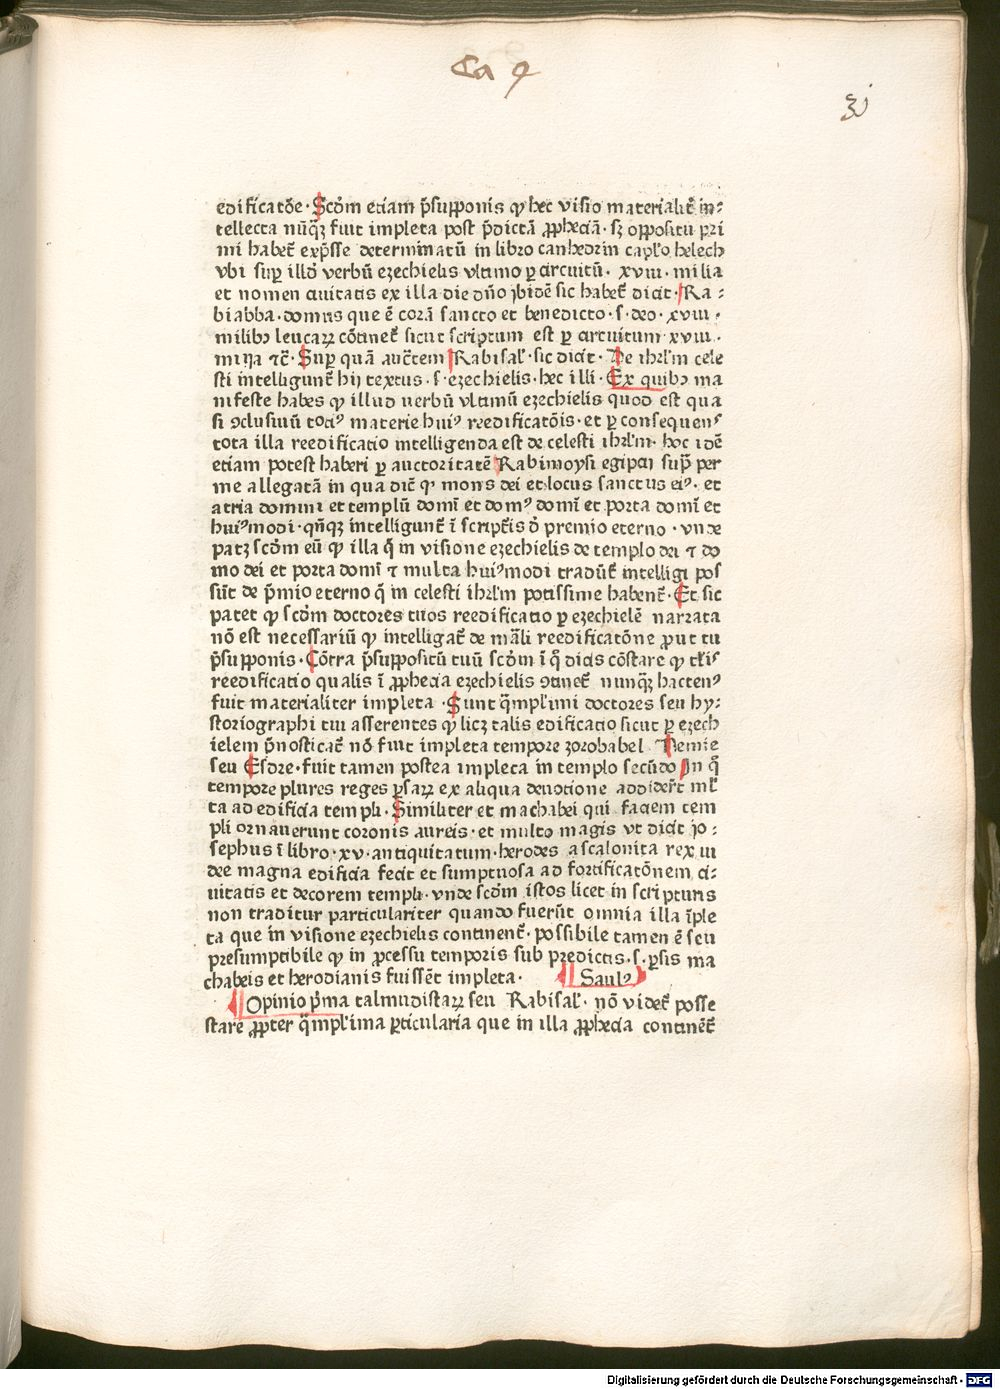 Ca 9
31
edificatōe· Scd̄m etiam p̄supponis ꝙ hec visio materialit̄ in⸗
tellecta nūq̄ꝫ fuit impleta post p̄dictā ꝓpheciā· sꝫ oppositū pri
mi habet̄ exp̄sse determinatū in libro canhedrin capl̓o helech
vbi suꝑ illd̓ verbū ezechielis vltimo ꝑ circuitū· xviii· milia
et nomen ciuitatis ex illa die dn̄o ꝯbidē sic habet̄ dicit· Ra⸗
biabba· domus que ē corā sancto et benedicto· s· deo· xviii·
milibꝰ leucaꝝ cōtinet̄ sicut scriptum est ꝑ circuitum xviii·
mi ija ⁊c̄· Suꝑ quā auc̄tem Rabisal̓· sic dicit· De ihrl̓m cele
sti intelligunt̄ hij textus· s· ezechielis· hec illi· Ex quibꝰ ma
nifeste habes ꝙ illud verbū vltimū ezechielis quod est qua
si ꝯclusiuū tociꝰ materie huiꝰ reedificatōis· et ꝑ consequenˢ
tota illa reedificatio intelligenda est de celesti ihrl̓m· hoc idē
etiam potest haberi ꝑ auctoritatē Rabimoysi egipcij sup̄ per
me allegatā in qua dic̄t ꝙ mons dei et locus sanctus eiꝰ· et
atria domini et templū domī et domꝰ domī et porta domī et
huiꝰmodi· qn̄qꝫ intelligunt̄ ī script̄is d̓ premio eterno· vnde
patꝫ scd̄m eū ꝙ illa q̄ in visione ezechielis de templo dei ⁊ do
mo dei et porta domī ⁊ multa huiꝰmodi tradūt̄ intelligi pos
sūt̄ de p̄mio eterno q̄ in celesti ihrl̓m potissime habent̄· Et sic
patet ꝙ scd̄m doctores tuos reedificatio ꝑ ezechielē narrata
nō est necessariū ꝙ intelligat̄ de māli reedificatōne ꝓut tu
p̄supponis· Cōtra p̄suppositū tuū scd̄m ī q̄ dicis cōstare ꝙ tl̓is
reedificatio qualis ī ꝓphecia ezechielis ꝯtinet̄ nunq̄ꝫ hactenꝰ
fuit materialiter impleta· Sunt q̄mpl̓imi doctores seu hy⸗
storiographi tui asserentes ꝙ licꝫ talis edificatio sicut ꝑ ezech
ielem p̄nosticat̄ nō fuit impleta tempore zorobabel Neemie
seu Esdre· fuit tamen postea impleta in templo secūdo In q̄
tempore plures reges ꝑsaꝝ ex aliqua deuotione addider̄t ml̓
ta ad edificia templi· Similiter et machabei qui faciem tem
pli ornauerunt coronis aureis· et multo magis vt dicit jo⸗
sephus ī libro· xv· antiquitatum· herodes ascalonita rex iu
dee magna edificia fecit et sumptuosa ad fortificatōnem ci⸗
uitatis et decorem templi· vnde scd̄m istos licet in scripturis
non traditur particulariter quando fuerūt omnia illa īple
ta que in visione ezechielis continent̄· possibile tamen ē seu
presumptibile ꝙ in ꝓcessu temporis sub predictis· s· ꝑsis ma
chabeis et herodianis fuissēt impleta· Saulꝰ
Opinio p̄ma talmudistaꝝ seu Rabisal̓· nō videt̄ posse
stare ꝓpter q̄mpl̓ima ꝑticularia que in illa ꝓphecia continēt̄
Digitalisierung gefördert durch die Deutsche Forschungsgemeinschaft · DFG